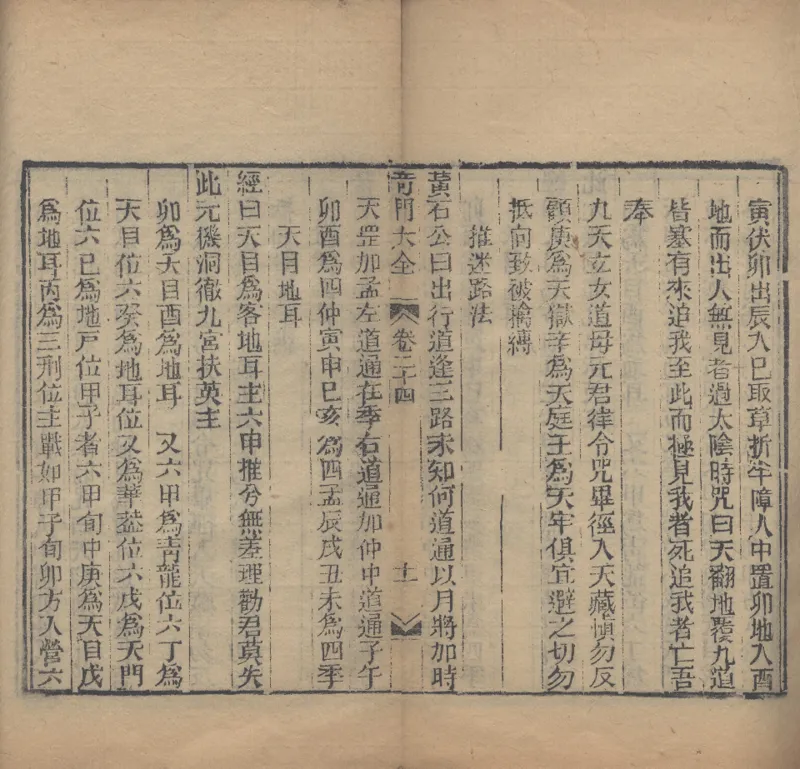 寅伏卯出辰入巳取草折半障人中置卯地入酉
地而出人無見者過太陰時咒曰天翻地覆九道
皆塞有來追我至此而極見我者死追我者亡吾
奉
九天玄女道母元君律令咒畢徑入天藏慎勿反
顧庚為天獄辛為天庭壬為天牢俱宜避之切勿
抵向致被擒縛
推迷路法
黃石公曰出行道逢三路未知何道通以月將加時
奇門大全 卷二十四 十一
天罡加孟左道通在季右道通加仲中道通子午
卯酉為四仲寅申巳亥為四孟辰戌丑未為四季
天目地耳
經曰天目為客地耳主六甲推兮無差理勸君莫失
此元機洞徹九宮扶英主
卯為天目酉為地耳 又六甲為青龍位六丁為
天目位六癸為地耳位又為華蓋位六戊為天門
位六己為地戶位甲子者六甲旬中庚為天目戊
為地耳丙為三刑位主戰如甲子旬卯方入營六